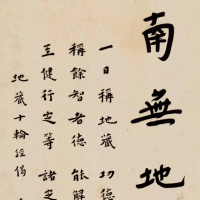 南無地
一日稱地藏 功德
稱餘智者德 能解
至健行定等 諸定
地藏十輪經偈